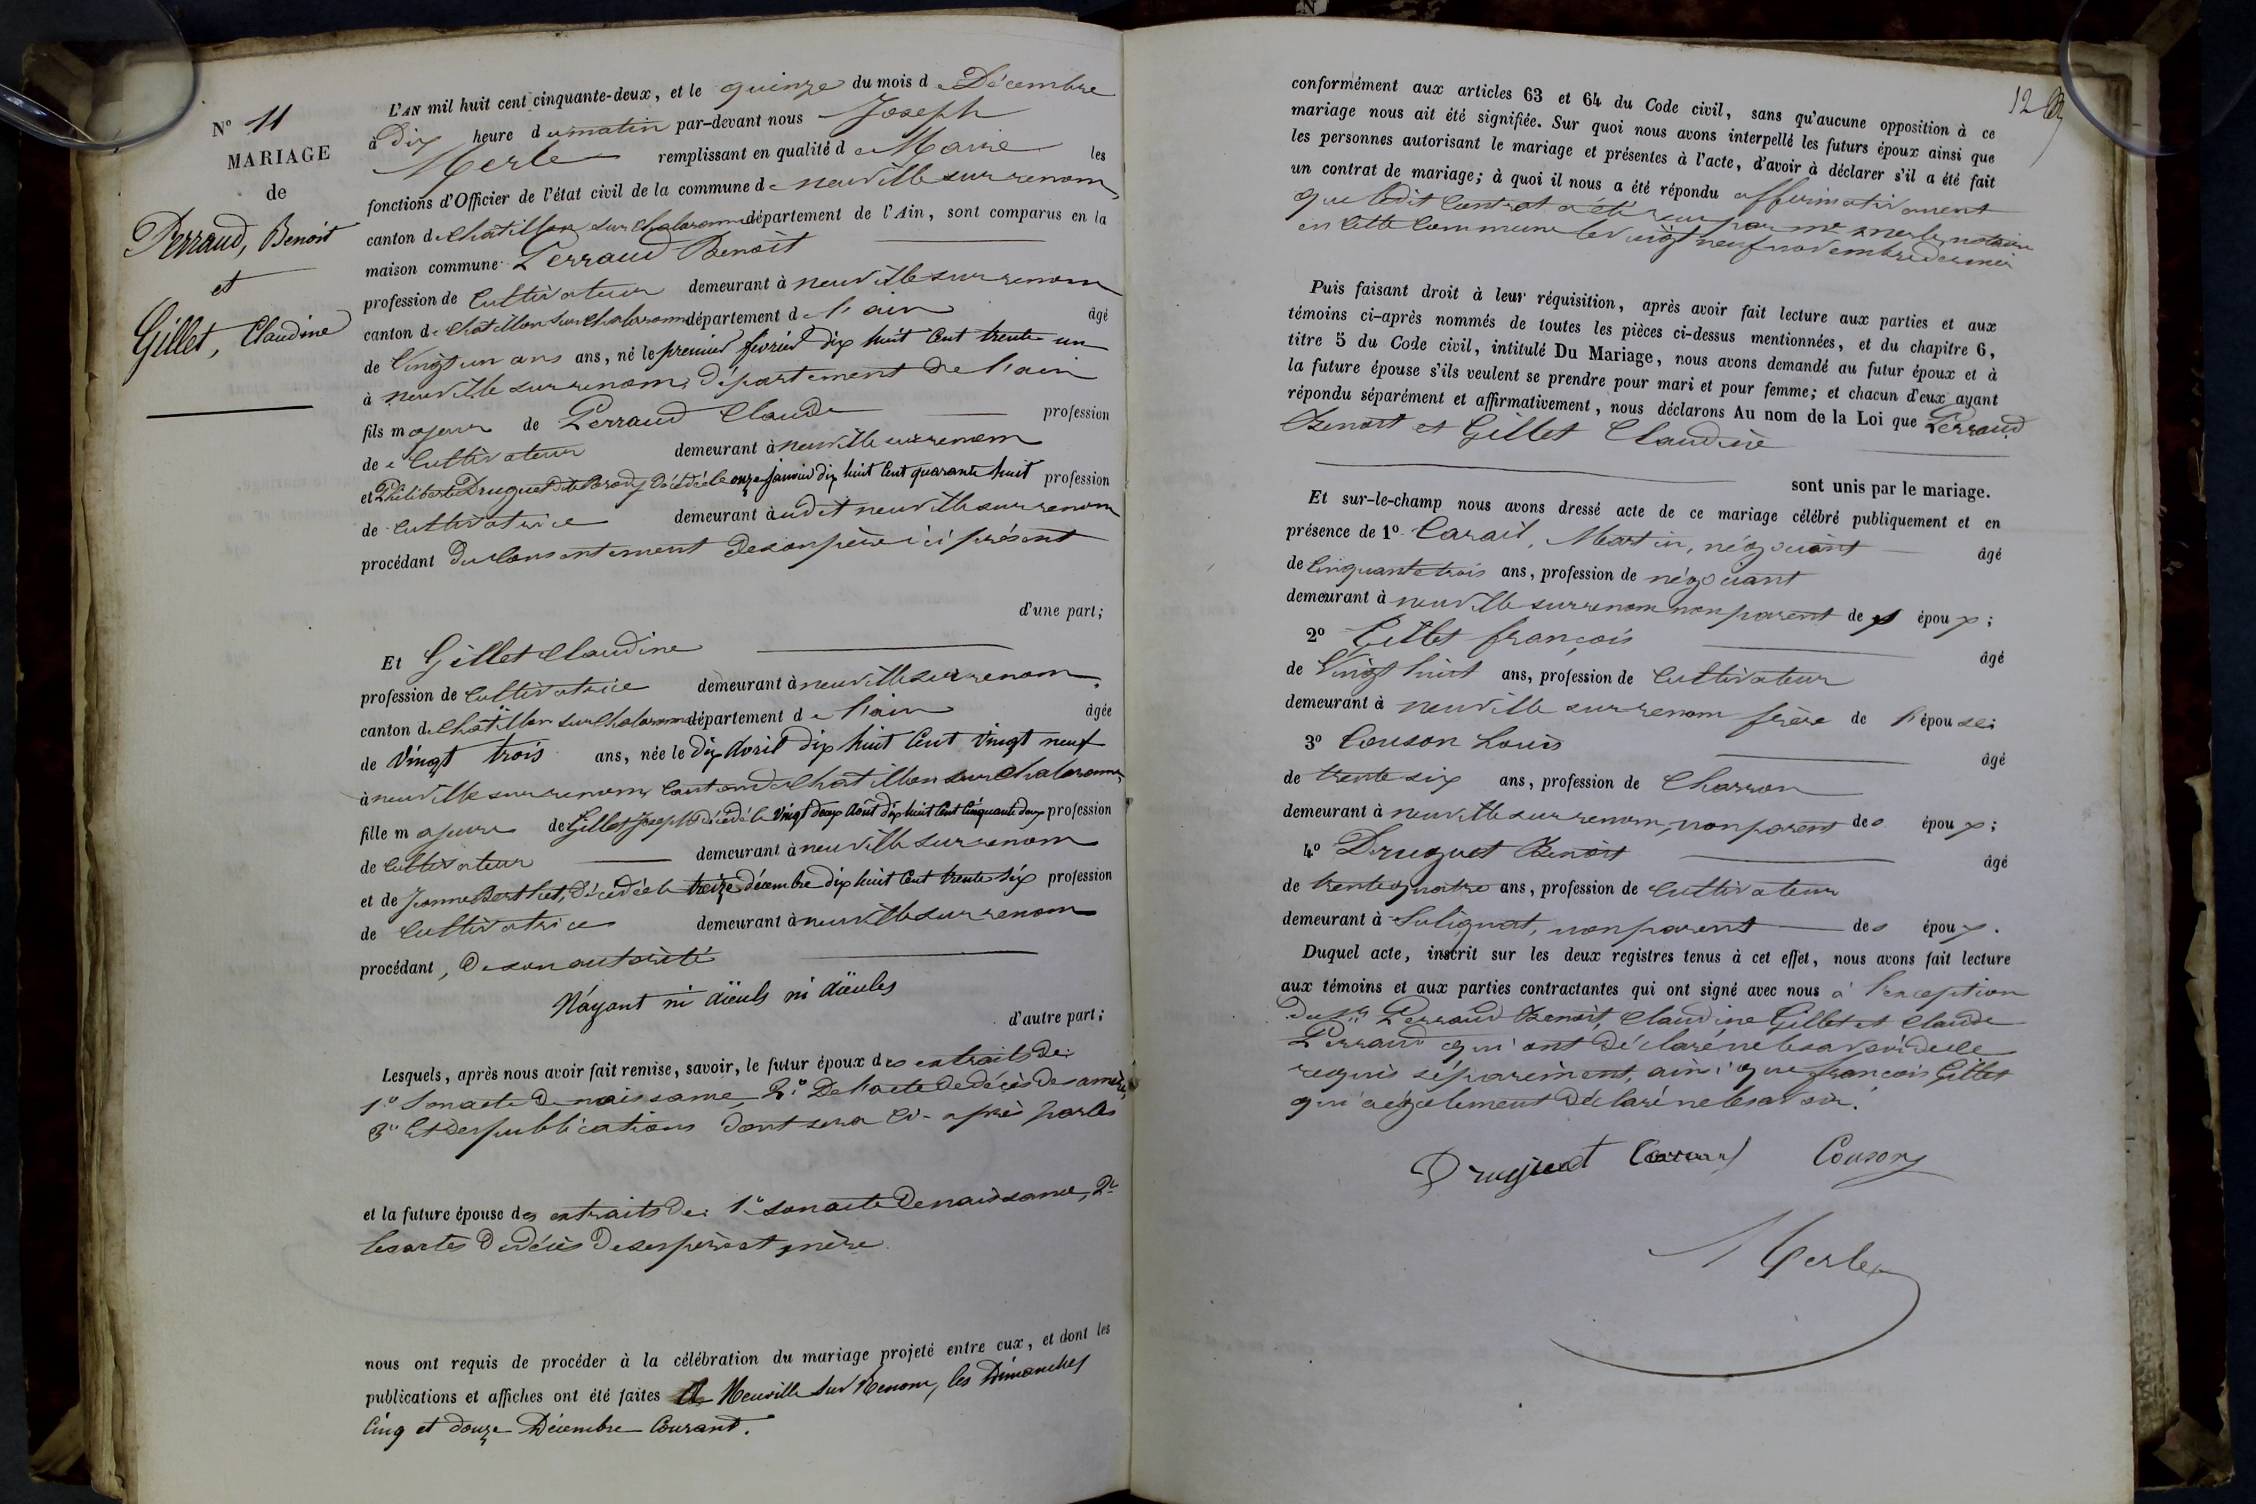 N° 11
MARIAGE
de
Perraud, Benoit
et
Gillet, Claudine
L'AN mil huit cent cinquante-deux, et le quinze du mois de Décembre
à Dix heure du matin par-devant nous Joseph
Merle remplissant en qualité de Maire les
fonctions d'Officier de l'état civil de la commune de neuville sur renom,
canton de chatillon sur chalaronne département de l'Ain, sont comparus en la
maison commune Perraud Benoit
profession de Cultivateur demeurant à neuville sur renom
canton de chatillon sur chalaronne département de l'ain âgé
de Vingt un ans ans, né le premier février dix huit Cent trente un
à neuville sur renom, département de l'ain
fils majeur de Perraud Claude profession
de Cultivateur demeurant à neuville sur renom
et Philiberte Druguet décédée le onze janvier dix huit Cent quarante huit profession
de Cultivatrice demeurant àudit neuville sur renom
procédant du Consentement de son père ici présent
d'une part;
Et Gillet Claudine
profession de Cultivatrice demeurant à neuville sur renom,
canton de chatillon sur chalaronne département de l'ain âgée
de Vingt trois ans, née le dix Avril dix huit Cent Vingt neuf
à neuville sur renom, Canton de Chatillon sur Chalaronne,
fille majeure de Gillet Joseph décédé le Vingt deux Août dix huit Cent Cinquante deux profession
de Cultivateur demeurant à neuville sur renom
et de Jeanne Berthet, décédée le treize décembre dix huit Cent trente six profession
de Cultivatrice demeurant à neuville sur renom
procédant, de son autorité
N'ayant ni aïeuls ni aïeules
d'autre part;
Lesquels, après nous avoir fait remise, savoir, le futur époux des extraits de:
1° Son acte de naissance, 2° De l'acte de décès de sa mère,
3° Et des publications dont sera ci-après parlé
et la future épouse des extraits de: 1° son acte de naissance, 2°
les actes de décès de ses père et mère
nous ont requis de procéder à la célébration du mariage projeté entre eux, et dont les
publications et affiches ont été faites A Neuville sur Renom, les Dimanches
Cinq et douze Décembre Courant.
12
conformément aux articles 63 et 64 du Code civil, sans qu'aucune opposition à ce
mariage nous ait été signifiée. Sur quoi nous avons interpellé les futurs époux ainsi que
les personnes autorisant le mariage et présentes à l'acte, d'avoir à déclarer s'il a été fait
un contrat de mariage; à quoi il nous a été répondu affirmativement
que ledit Contrat a été reçu par me merle, notaire
en cette Commune le vingt neuf novembre dernier
Puis faisant droit à leur réquisition, après avoir fait lecture aux parties et aux
témoins ci-après nommés de toutes les pièces ci-dessus mentionnées, et du chapitre 6,
titre 5 du Code civil, intitulé Du Mariage, nous avons demandé au futur époux et à
la future épouse s'ils veulent se prendre pour mari et pour femme; et chacun d'eux ayant
répondu séparément et affirmativement, nous déclarons Au nom de la Loi que Perraud
Benoit et Gillet Claudine
sont unis par le mariage.
Et sur-le-champ nous avons dressé acte de ce mariage célébré publiquement et en
présence de 1° Carail, Martin, négociant âgé
de Cinquante trois ans, profession de négociant
demeurant à neuville sur renom non parent des époux;
2° Gillet françois âgé
de Vingt huit ans, profession de Cultivateur
demeurant à neuville sur renom frère de l'épouse;
3° Couson Louis âgé
de trente six ans, profession de Charron
demeurant à neuville sur renom, non parent des époux;
4° Druguet Benoit âgé
de trente quatre ans, profession de Cultivateur
demeurant à Sulignat, non parent des époux.
Duquel acte, inscrit sur les deux registres tenus à cet effet, nous avons fait lecture
aux témoins et aux parties contractantes qui ont signé avec nous à l'exception
Perraud Benoit, Claudine Gillet et Claude
Perraud qui ont déclaré ne le savoir de ce
requis séparément, ainsi que françois Gillet
qui a également déclaré ne le savoir.
Druguet Carail Couson
Merle